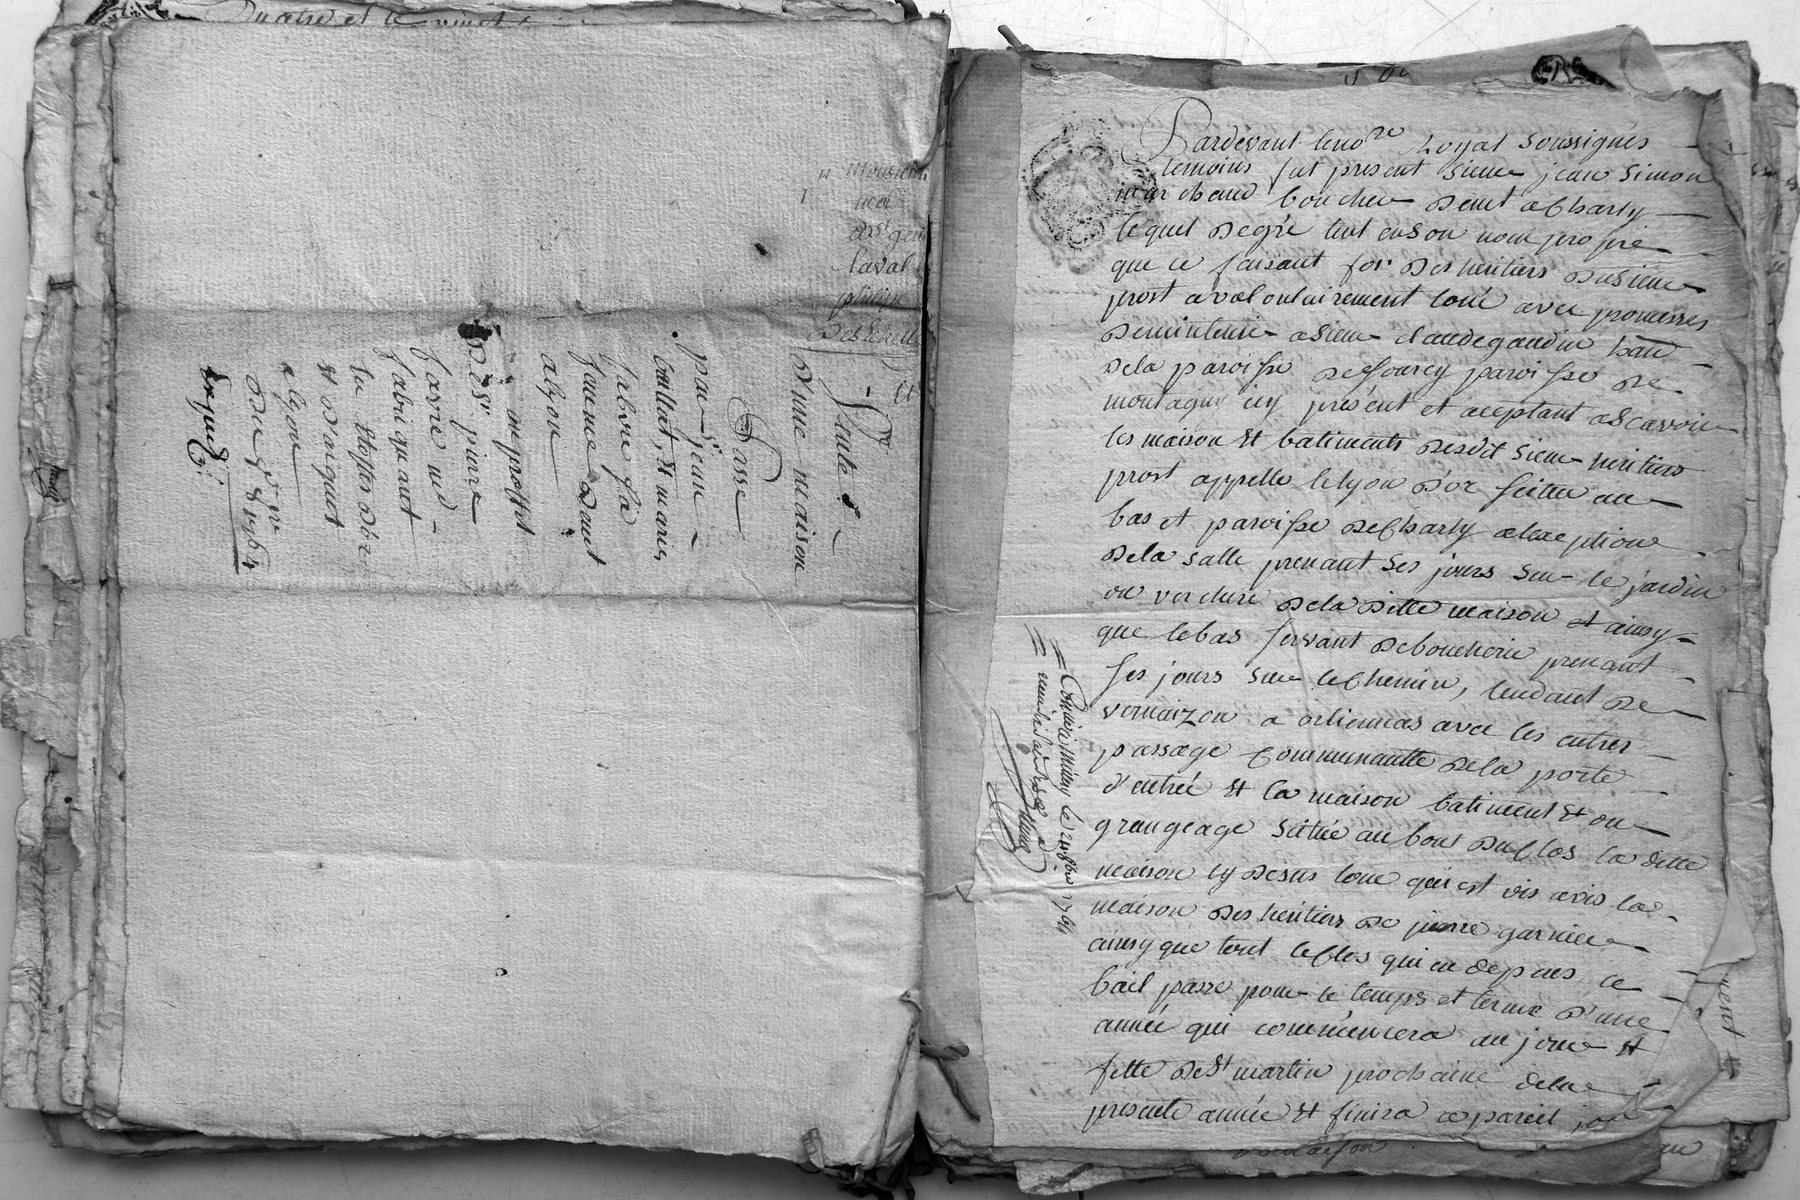 Quatre et le vingt
Monsieur
Laval
philipe
Et
Vente
D'une maison
Passe
par Sr jean
Caillat, Et marie
fabvre sa
femme Demt
alyon
au proffit
De Sr pierre
favre md
fabriquant
En Etoffes d'or
Et D'argent
alyon
Du 9bre 1764
Expedj.
Pardevant le nore Royal Soussignés
temoins fut present Sieur jean Simon
marchand boucher Demt a Charly
lequel De gré tant en Son nom propre
que ce faisant for Des heritiers Du Sieur
prost a volontairement loué avec promesses
De maintenir a Sieur Claude gaudin
De la paroisse De Sourcy paroisse De
montagny icy présent et aceptant aScavoir
les maison Et batiments Desdt Sieur heritiers
prost appellé le lyon D'or Scittué au
bas et paroisse De Charly a lexeption
De la Salle prenant Ses jours Sur le jardin
ou verchere De la Ditte maison et ainsy
que le bas servant De boucherie prenant
ses jours Sur le Chemin, tendant De
vernaizon a orliennas avec les autres
passage Communautte De la porte
d'entrée Et la maison batiment Et ou
grangeage Scittué au bout Du Clos la ditte
maison cy Desus loué qui est vis avis la
maison Des heritiers De pierre garnier
ainsy que tout le Clos qui en depens ce
bail passé pour le temps et terme D'une
année qui commencera au jour Et
fette De St martin prochaine dela
presente année Et finira a pareil jour
Controllé a Millery le 21 8bre 1764